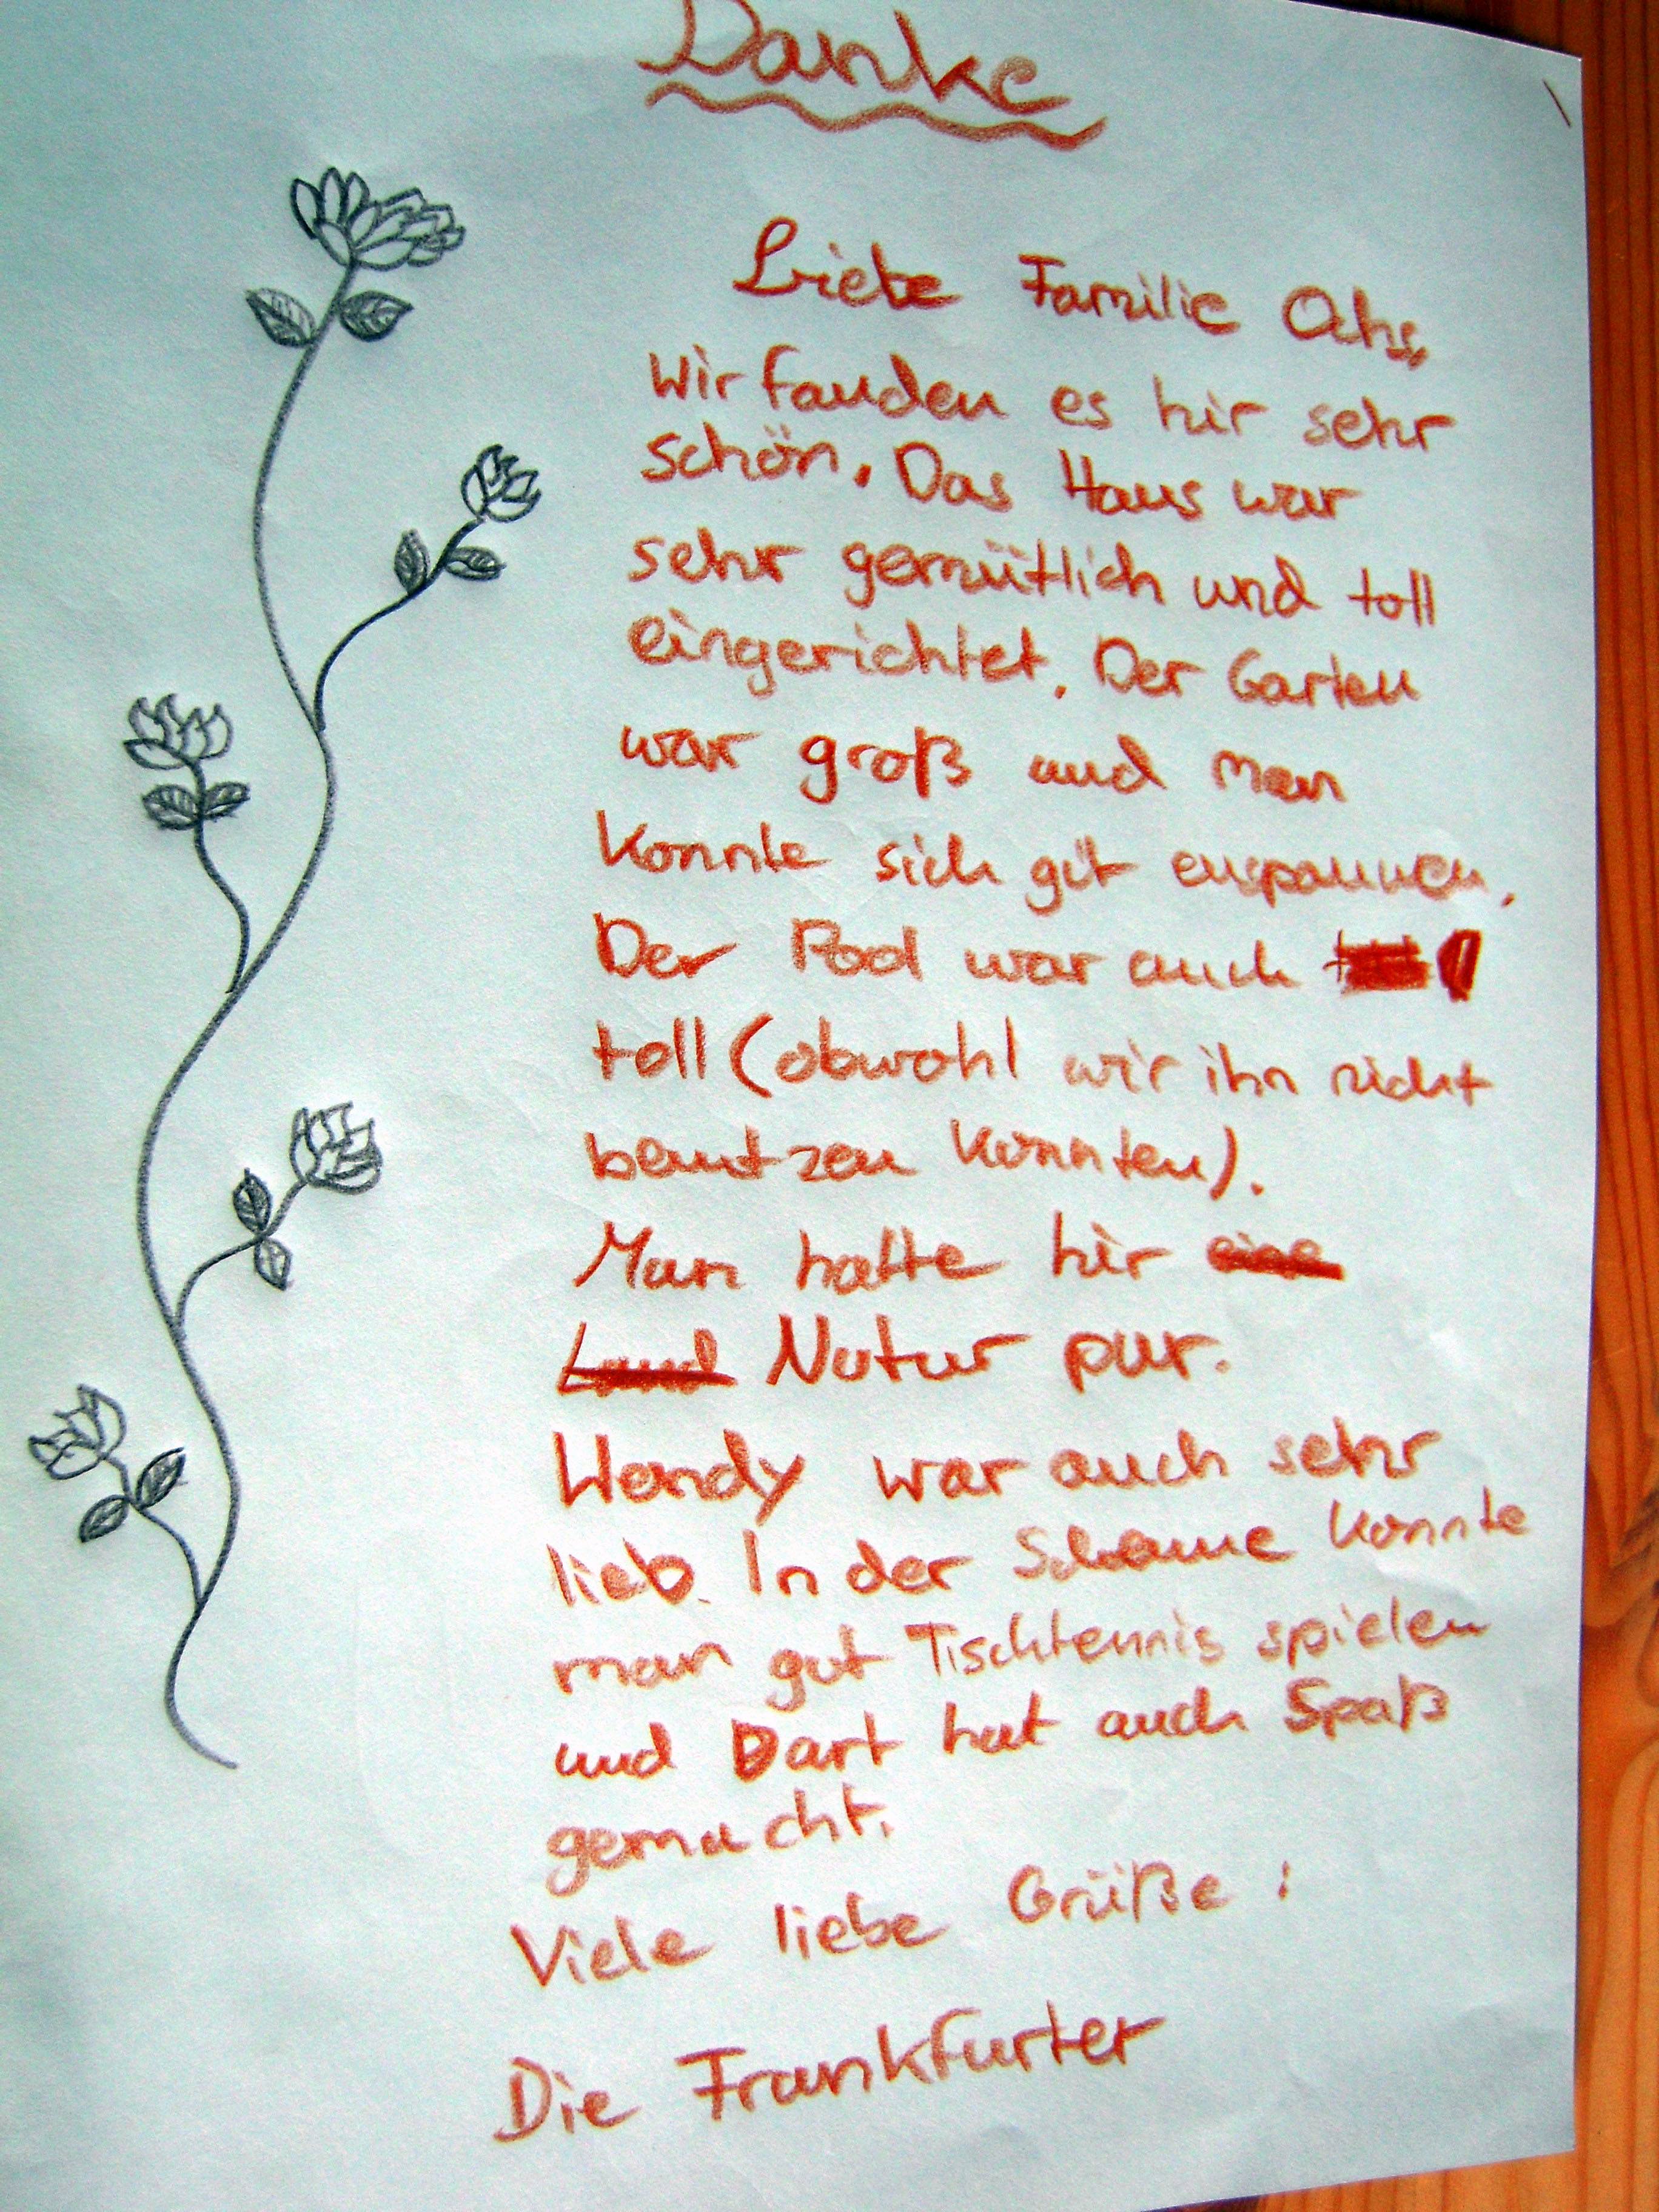 Danke
Liebe Familie Ochs,
Wir fanden es hir sehr
schön. Das Haus war
sehr gemütlich und toll
eingerichtet. Der Garten
war groß und man
konnte sich gut enspannen.
Der Pool war auch
toll (obwohl wir ihn nicht
benutzen konnten).
Man hatte hir eine
Land Natur pur.
Wendy war auch sehr
lieb. In der Scheune konnte
man gut Tischtennis spielen
und Dart hat auch Spaß
gemacht.
Viele liebe Grüße:
Die Frankfurter